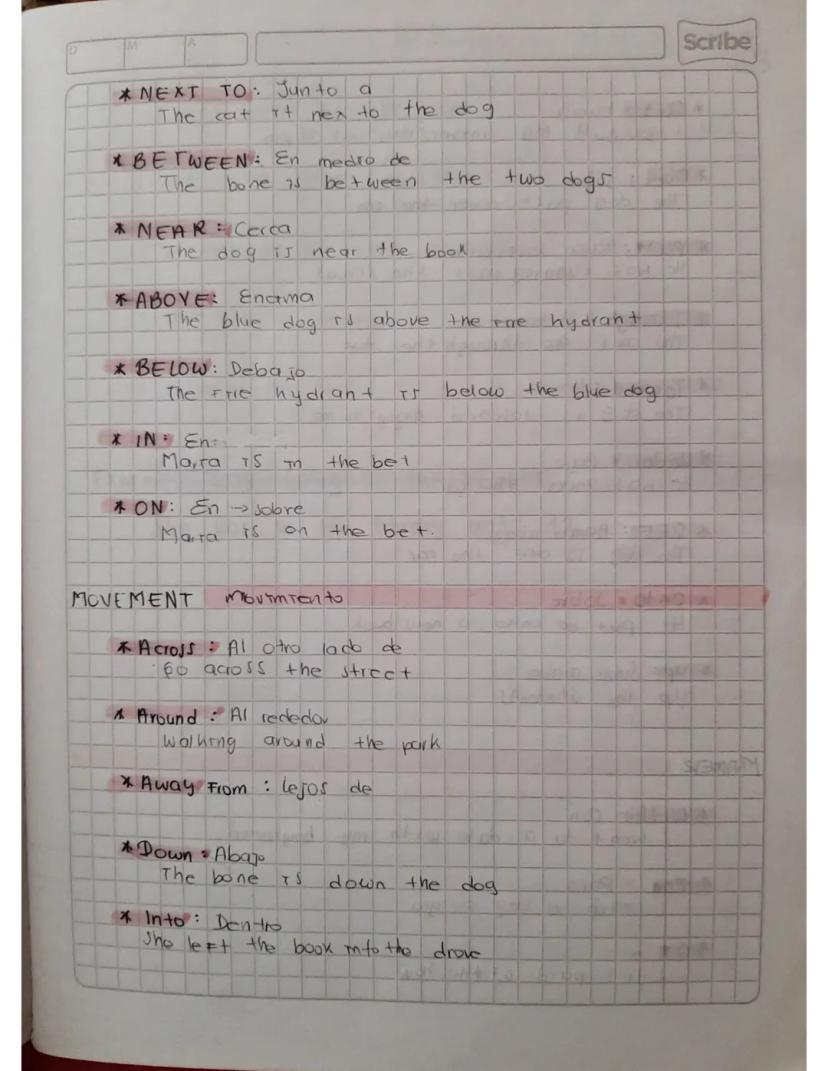 D M A
Scribe
* NEXT TO: Junto a
The cat it nex to the dog
* BETWEEN: En medio de
The bone is between the two dogs
* NEAR: Cerca
The dog is near the book
* ABOVE: Encima
The blue dog is above the hydrant
* BELOW: Debajo
The Frie hydrant is below the blue dog
* IN: En:
Maria is in the bet
* ON: En → sobre
Maria is on the bet.
MOVEMENT Movimiento
* Across: Al otro lado de
Go across the street
* Around: Al rededor
Walking around the park
* Away From: lejos de
* Down: Abajo
The bone is down the dog
* Into: Dentro
She left the book into the